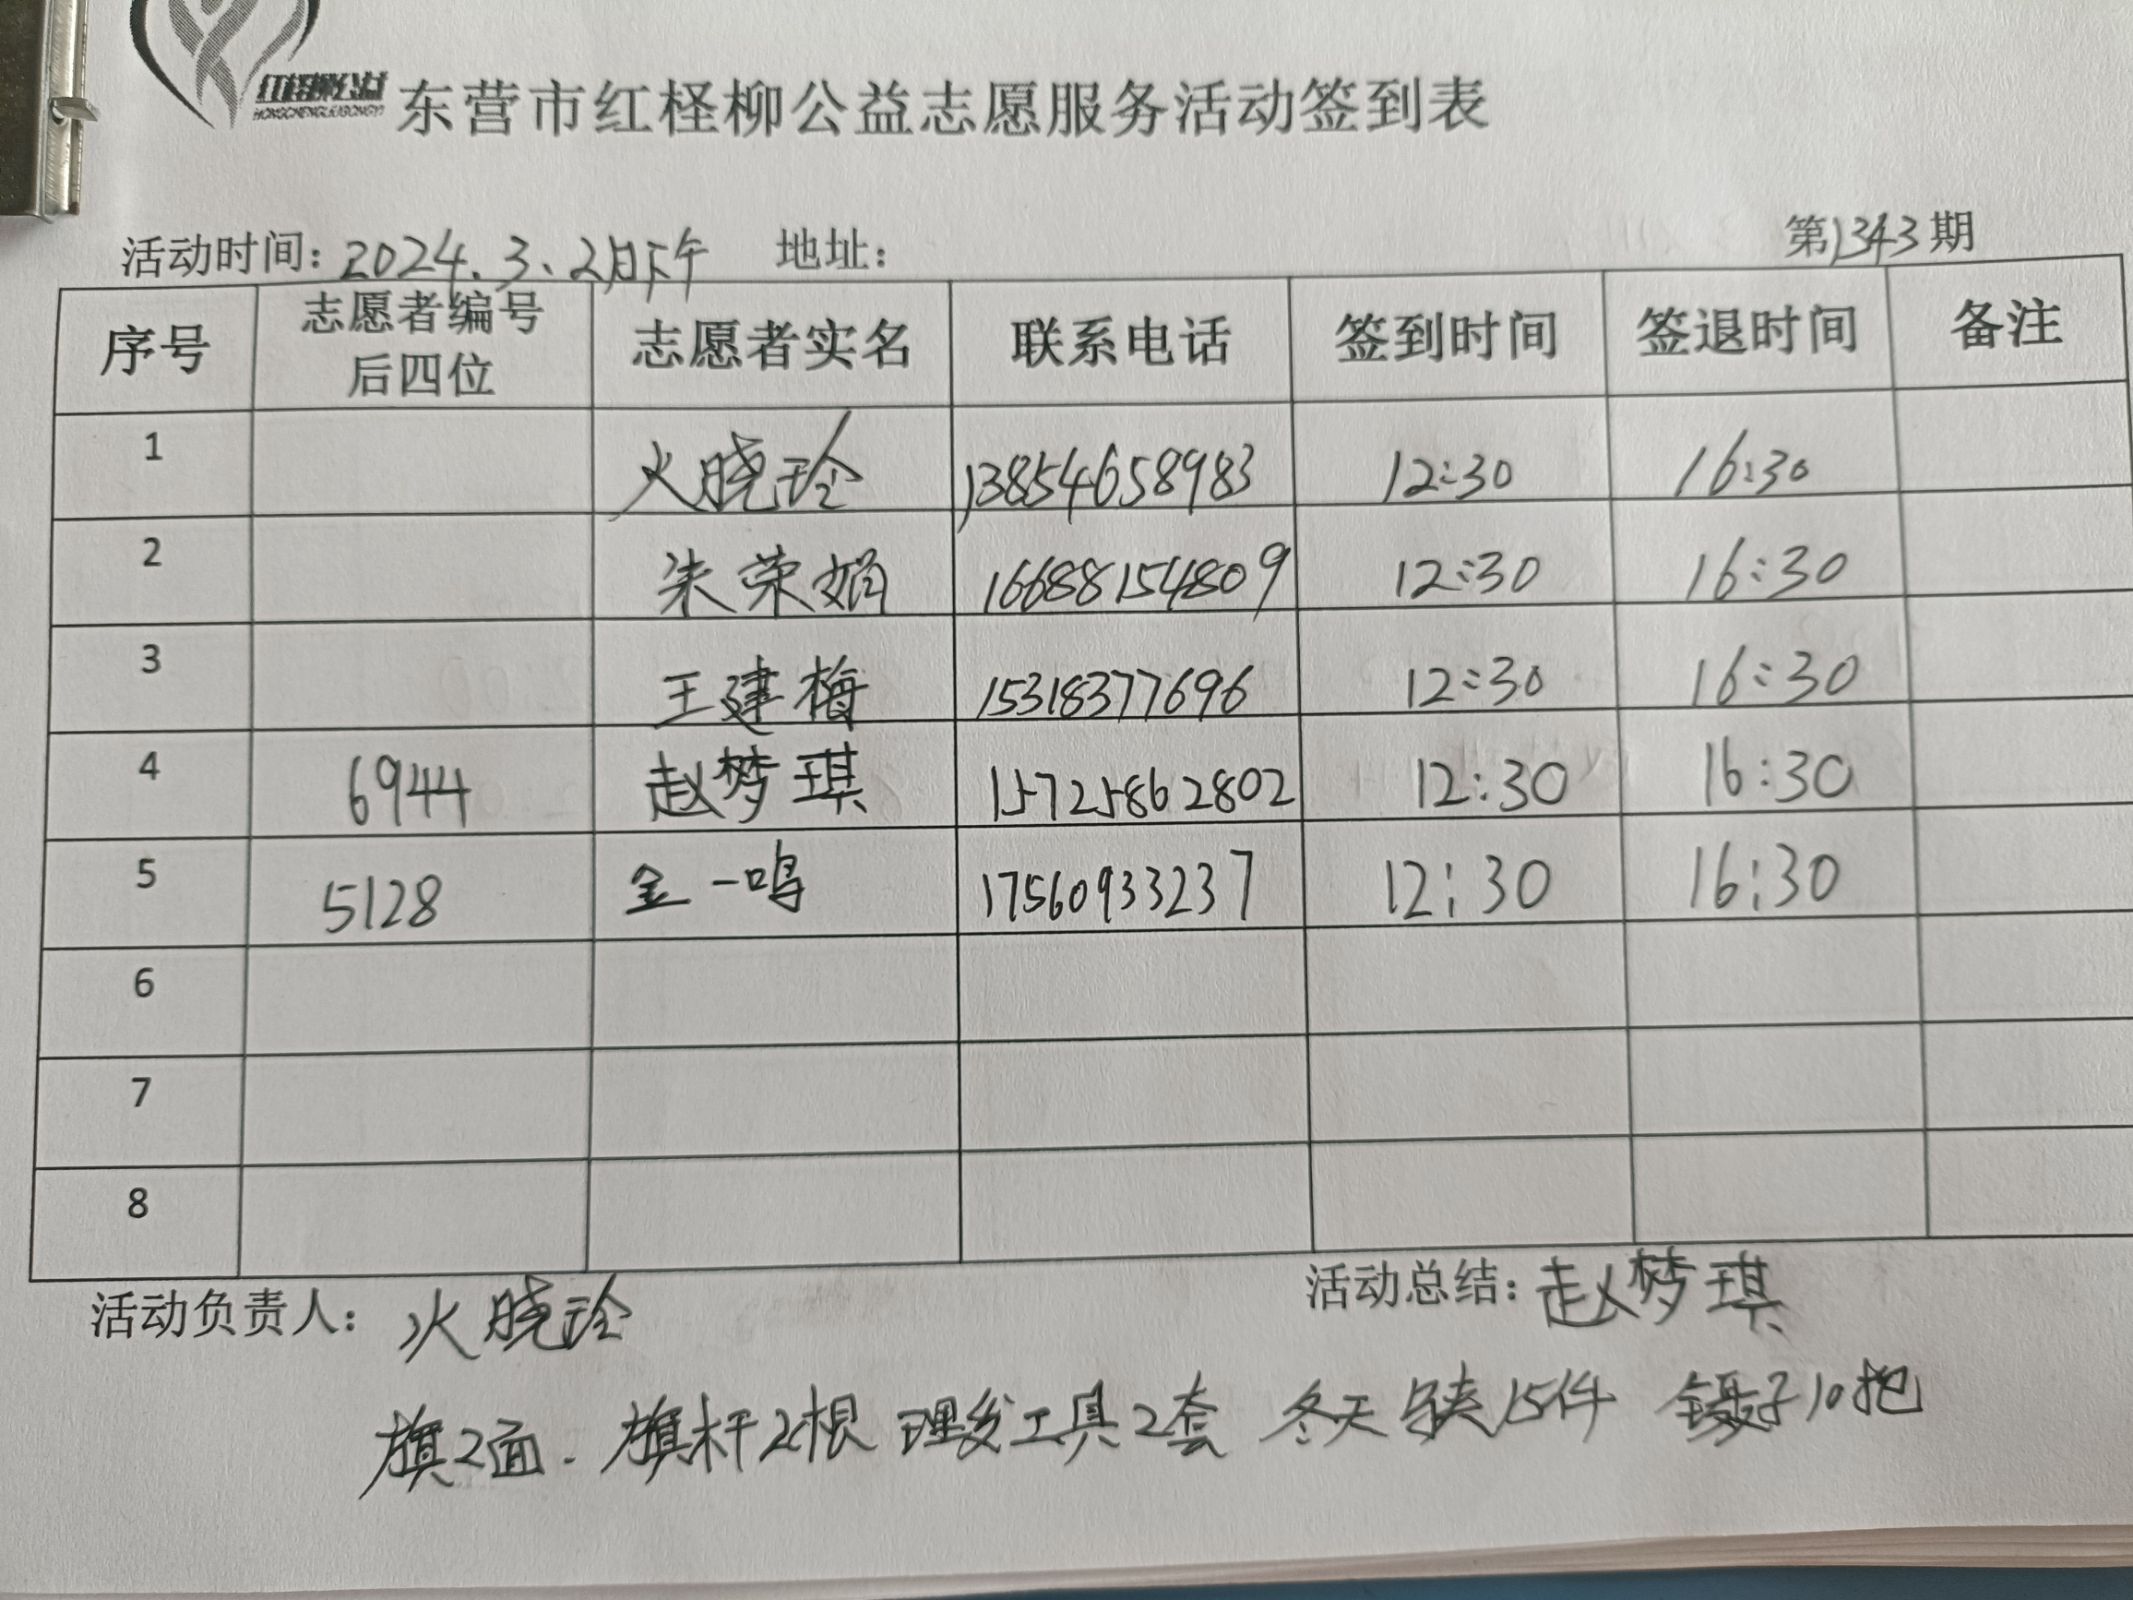 红柽柳公益
HONGCHENGLIUGONGYI
东营市红柽柳公益志愿服务活动签到表
活动时间: 2024.3.2日下午 地址: 第1343期
序号 志愿者编号后四位 志愿者实名 联系电话 签到时间 签退时间 备注
1 火晓玲 13854658983 12:30 16:30
2 朱荣娟 16688154809 12:30 16:30
3 王建梅 15318377696 12:30 16:30
4 6944 赵梦琪 15725862802 12:30 16:30
5 5128 金一鸣 17560933237 12:30 16:30
6
7
8
活动负责人: 火晓玲 活动总结: 赵梦琪
旗2面. 旗杆2根 理发工具2套 冬天 15件 镊子10把